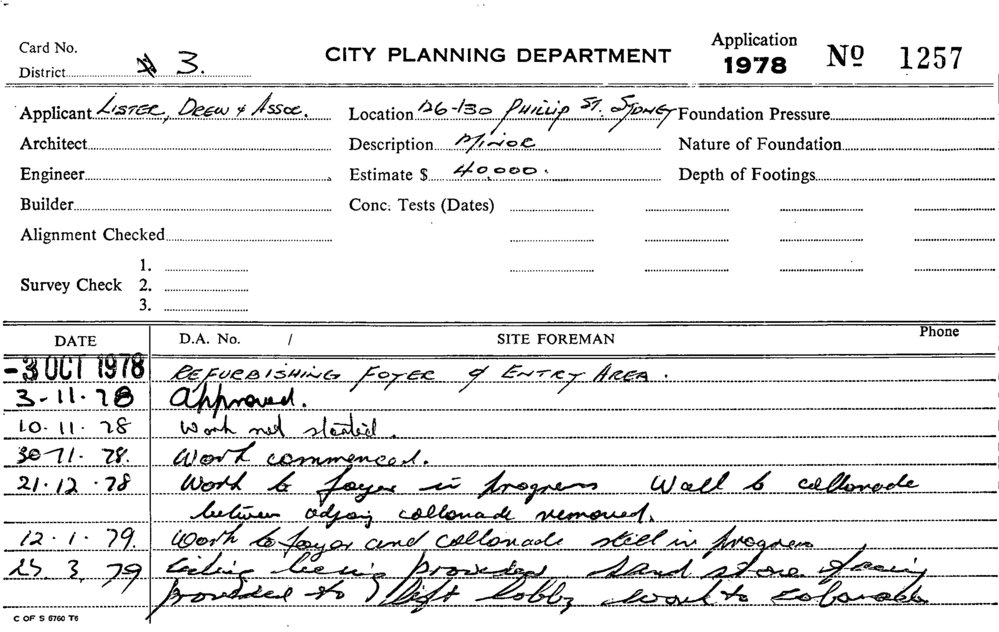 Card No.
District # 3.
CITY PLANNING DEPARTMENT
Application
1978
Nº 1257
Applicant LISTER, DREW & ASSOC.
Location 126-130 PHILLIP ST. SYDNEY
Foundation Pressure
Architect
Description MINOR
Nature of Foundation
Engineer
Estimate $ 40,000.
Depth of Footings
Builder
Conc. Tests (Dates)
Alignment Checked
1.
Survey Check 2.
3.
DATE D.A. No. / SITE FOREMAN Phone
-3 OCT 1978 REFURBISHING FOYER & ENTRY AREA.
3-11-78 Approved.
10.11.78 Work not started.
30.11.78. Work commenced.
21.12.78 Work to foyer in progress Wall to collonade
between adjoing collonade removed.
12.1.79. Work to foyer and collonade still in progress
3.79 Ceiling being provided sand stone facing
provided to lift lobby work to
C OF S 6760 T6